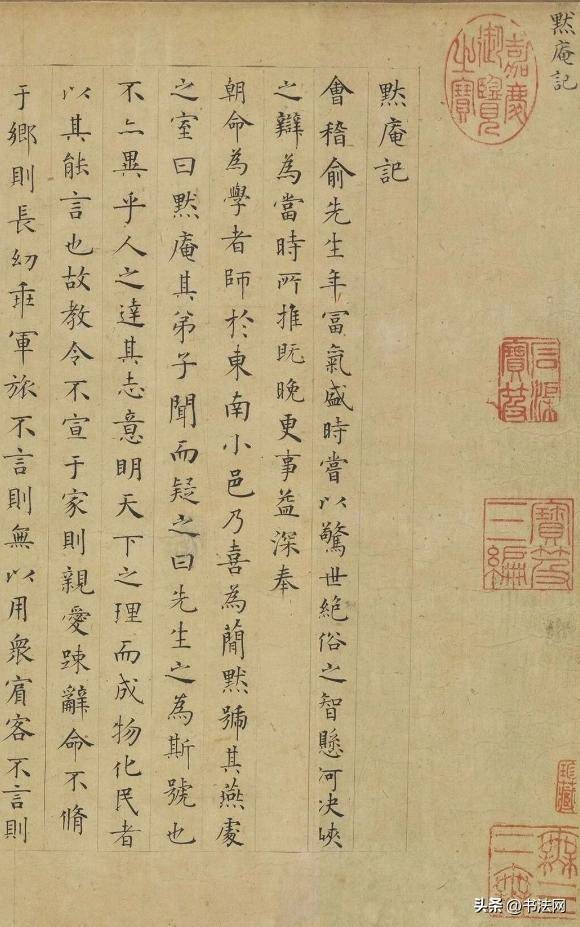 默庵記
嘉慶御覽之寶
石渠寶笈
寶笈三編
珍藏
默庵記
會稽俞先生年冨氣盛時嘗以驚世絕俗之智懸河決峽
之辯為當時所推既晚更事益深奉
朝命為學者師於東南小邑乃喜為簡默號其燕處
之室曰默庵其弟子聞而疑之曰先生之為斯號也
不亦異乎人之達其志意明天下之理而成物化民者
以其能言也故教令不宣于家則親愛踈辭命不脩
于鄉則長幼乖軍旅不言則無以用衆賔客不言則
头条 @书法网